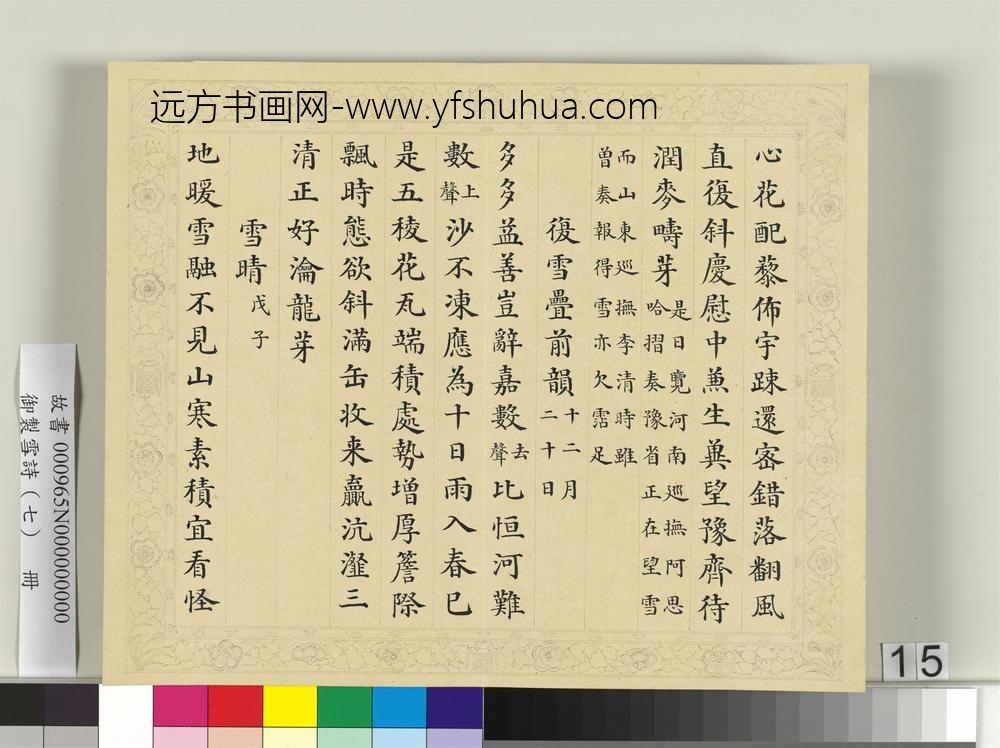 远方书画网-www.yfshuhua.com
心花配藜佈宇踈還宻錯落翻風
直復斜慶慰中蕉生兾望豫齊待
潤麥疇芽是日覽河南巡撫阿思
哈摺奏豫省正在望雪
而山東巡撫李清時雖
曽奏報得雪亦欠霑足
復雪疊前韻十二月
二十日
多多益善豈辭嘉數去
聲比恒河難
數上
聲沙不凍應為十日雨入春已
是五稜花瓦端積處勢增厚簷際
飄時態欲斜滿缶收来贏沆瀣三
清正好瀹龍芽
雪晴戊子
地暖雪融不見山寒素積宜看怪
故書 000965N000000000
御製雪詩（七） 冊
15